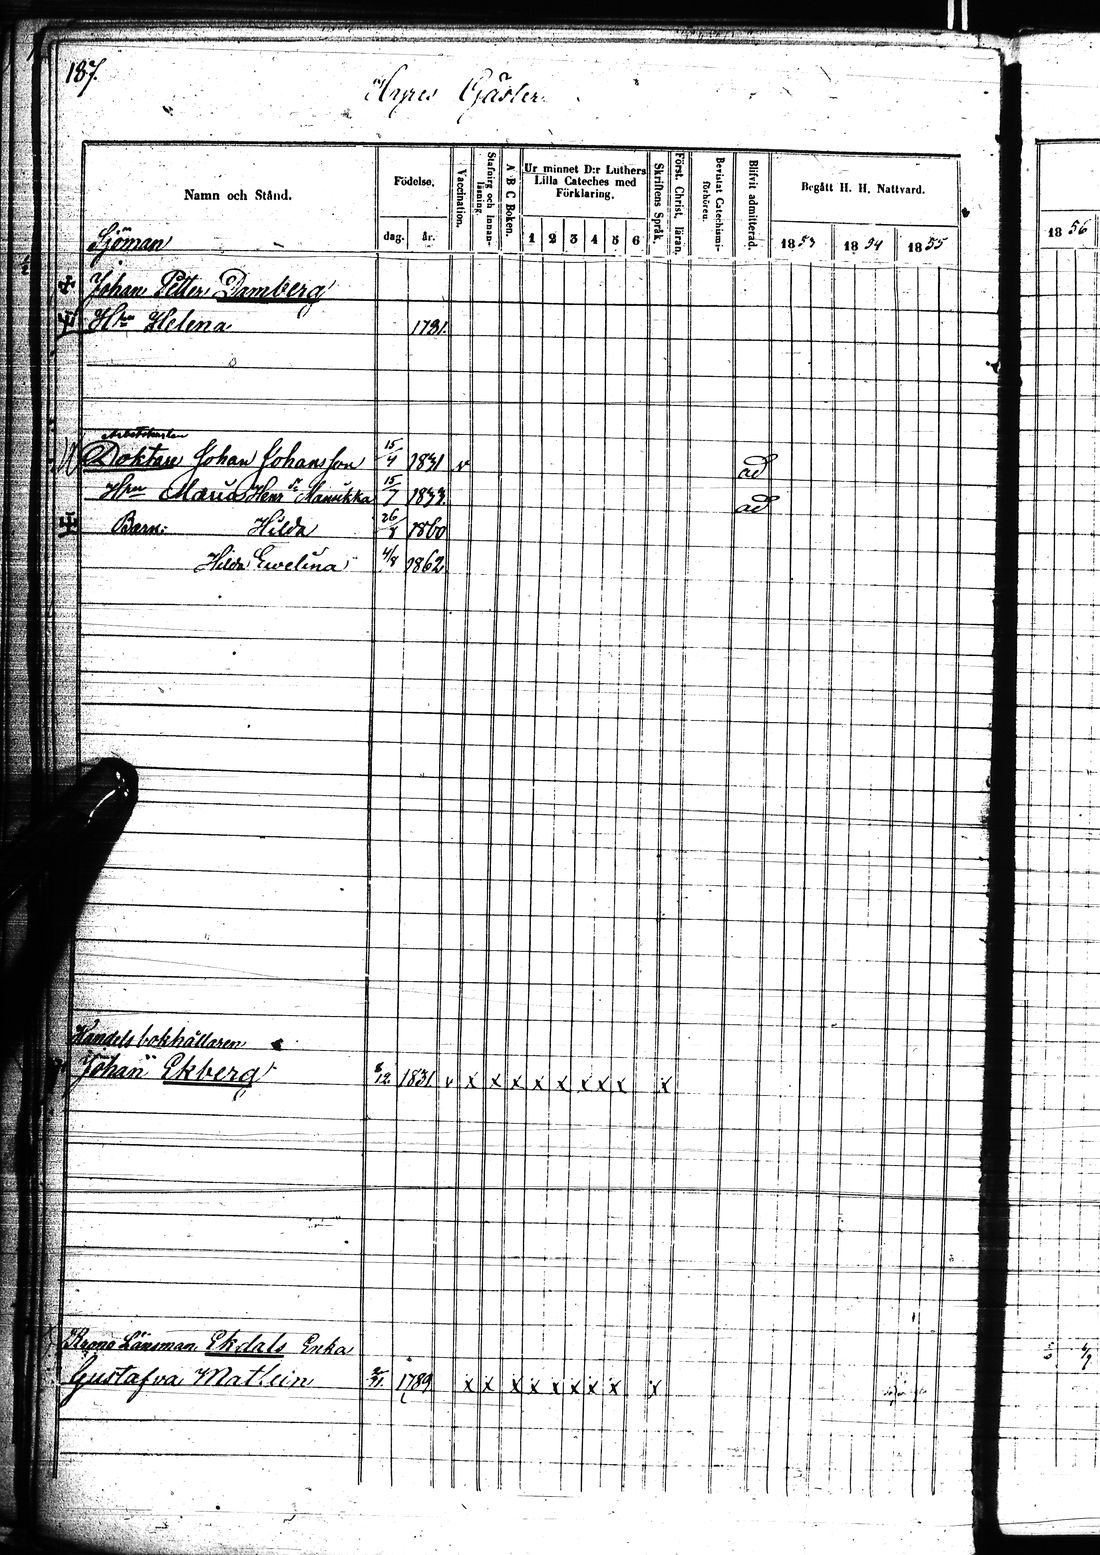 187.
Hyres Gäster.
Namn och Stånd.
Födelse.
dag. år.
Vaccination.
Stafning och Innanläsning.
A B C Boken.
Ur minnet D:r Luthers Lilla Cateches med Förklaring.
1 2 3 4 5 6
Skriftens Språk.
Först. Christ. läran.
Bevistat Catechismiförhören.
Blifvit admitterad.
Begått H. H. Nattvard.
1853 1854 1855
1856
Sjöman
Johan Petter Damberg
Hu Helena 1781
Arbetskarlen
Doktare Johan Johansson 15/4 1831 v ad
Hru Maria Henr. dr Manukka 15/7 1833 ad
Barn: Hilda 26/8 1860
Hilda Ewelina 4/8 1862
Handels bokhållaren
Johan Ekberg 8/12 1831 v x x x x x x x x x
Krono Länsman Ekdals Enka
Gustafva Matlein 1789 x x x x x x x x x